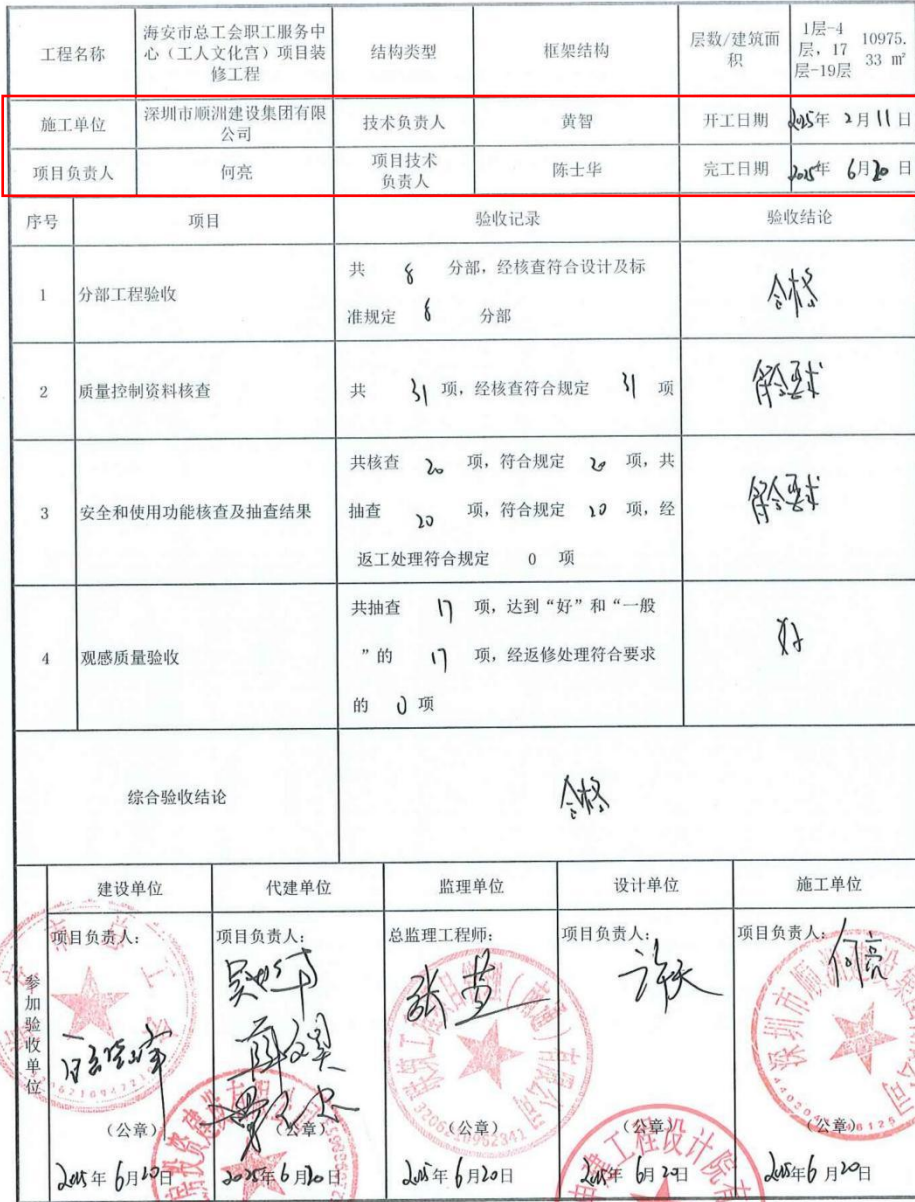 工程名称
海安市总工会职工服务中
心（工人文化宫）项目装
修工程
结构类型
框架结构
层数/建筑面
积
1层-4
层，17
层-19层
10975.
33 ㎡
施工单位
深圳市顺洲建设集团有限
公司
技术负责人
黄智
开工日期
2025年 2月11日
项目负责人
何亮
项目技术
负责人
陈士华
完工日期
2025年 6月20日
序号
项目
验收记录
验收结论
1
分部工程验收
共 8 分部，经核查符合设计及标
准规定 8 分部
合格
2
质量控制资料核查
共 31 项，经核查符合规定 31 项
符合要求
3
安全和使用功能核查及抽查结果
共核查 20 项，符合规定 20 项，共
抽查 20 项，符合规定 20 项，经
返工处理符合规定 0 项
符合要求
4
观感质量验收
共抽查 17 项，达到“好”和“一般
”的 17 项，经返修处理符合要求
的 0 项
好
综合验收结论
合格
参加验收单位
建设单位
代建单位
监理单位
设计单位
施工单位
项目负责人：
项目负责人：
总监理工程师：
项目负责人：
项目负责人：
何亮
（公章）
（公章）
（公章）
（公章）
2025年6月20日
2025年6月20日
2025年6月20日
2025年6月20日
2025年6月20日